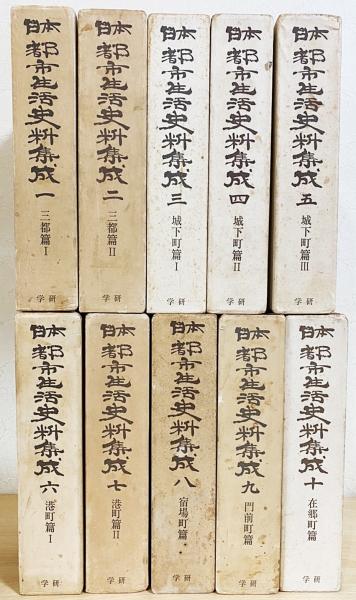 日本都市生活史料集成 一 三都篇Ⅰ
学研
日本都市生活史料集成 二 三都篇Ⅱ
学研
日本都市生活史料集成 三 城下町篇Ⅰ
学研
日本都市生活史料集成 四 城下町篇Ⅱ
学研
日本都市生活史料集成 五 城下町篇Ⅲ
学研
日本都市生活史料集成 六 港町篇Ⅰ
学研
日本都市生活史料集成 七 港町篇Ⅱ
学研
日本都市生活史料集成 八 宿場町篇
学研
日本都市生活史料集成 九 門前町篇
学研
日本都市生活史料集成 十 在郷町篇
学研